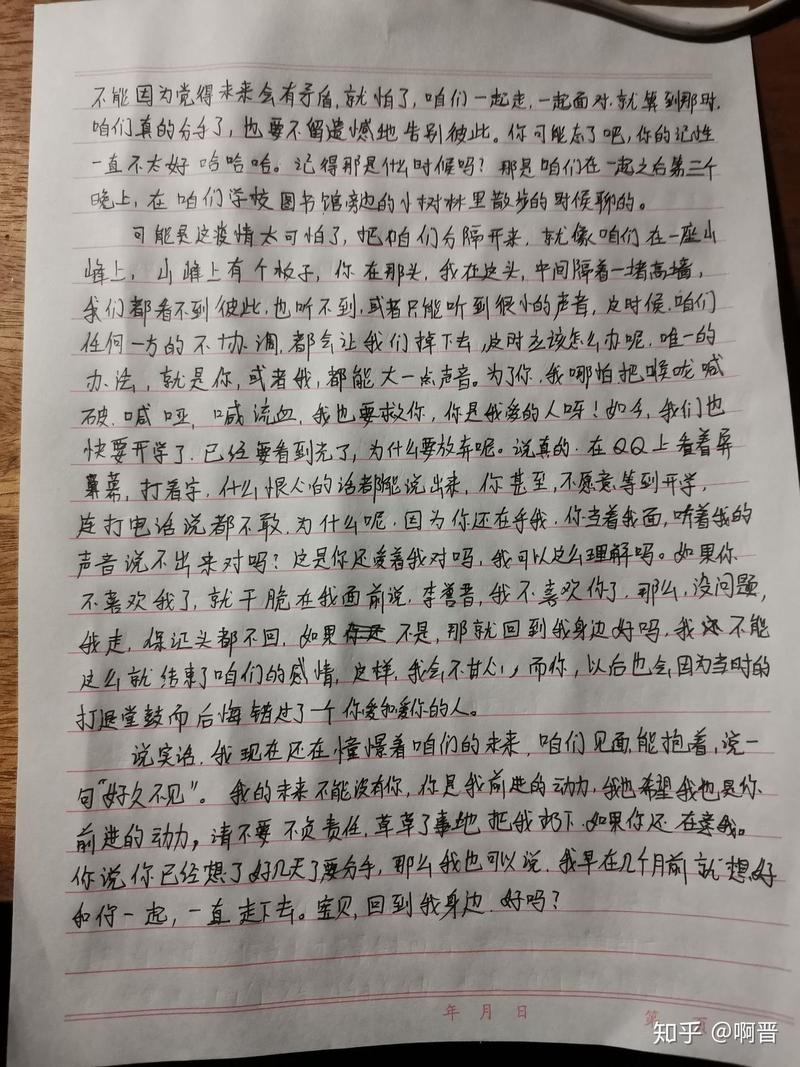 不能因为觉得未来会有矛盾,就怕了,咱们一起走,一起面对.就算到那时.
咱们真的分手了,也要不留遗憾地告别彼此。你可能忘了吧,你的记性
一直不太好哈哈哈。记得那是什么时候吗?那是咱们在一起之后第三个
晚上,在咱们学校图书馆旁边的小树林里散步的时候聊的。
可能是这疫情太可怕了,把咱们分隔开来,就像咱们在一座山
峰上,山峰上有个板子,你在那头,我在这头,中间隔着一堵高墙,
我们都看不到彼此,也听不到,或者只能听到很小的声音,这时候,咱们
任何一方的不协调,都会让我们掉下去,这时应该怎么办呢,唯一的
办法,就是你,或者我,都能大一点声音。为了你,我哪怕把喉咙喊
破.喊哑,喊流血,我也要救你,你是我爱的人呀!如今,我们也
快要开学了.已经要看到光了,为什么要放弃呢。说真的.在QQ上看着屏
幕,打着字,什么恨心的话都能说出来,你甚至,不愿意等到开学,
连打电话说都不敢.为什么呢.因为你还在乎我.你当着我面,听着我的
声音说不出来对吗?这是你还爱着我对吗,我可以这么理解吗。如果你
不喜欢我了,就干脆在我面前说,李誉晋,我不喜欢你了.那么,没问题,
我走,保证头都不回,如果不是,那就回到我身边好吗,我不能
这么就结束了咱们的感情,这样,我会不甘心,而你,以后也会因为当时的
打退堂鼓而后悔错过了一个你爱和爱你的人。
说实话.我现在还在憧憬着咱们的未来,咱们见面,能抱着,说一
句“好久不见”。我的未来不能没有你,你是我前进的动力.我也希望我也是你
前进的动力,请不要不负责任,草草了事地把我扔下.如果你还在意我。
你说你已经想了好几天了要分手,那么我也可以说.我早在几个月前就想好
和你一起,一直走下去。宝贝,回到我身边.好吗?
年 月 日 第 页
知乎 @啊晋